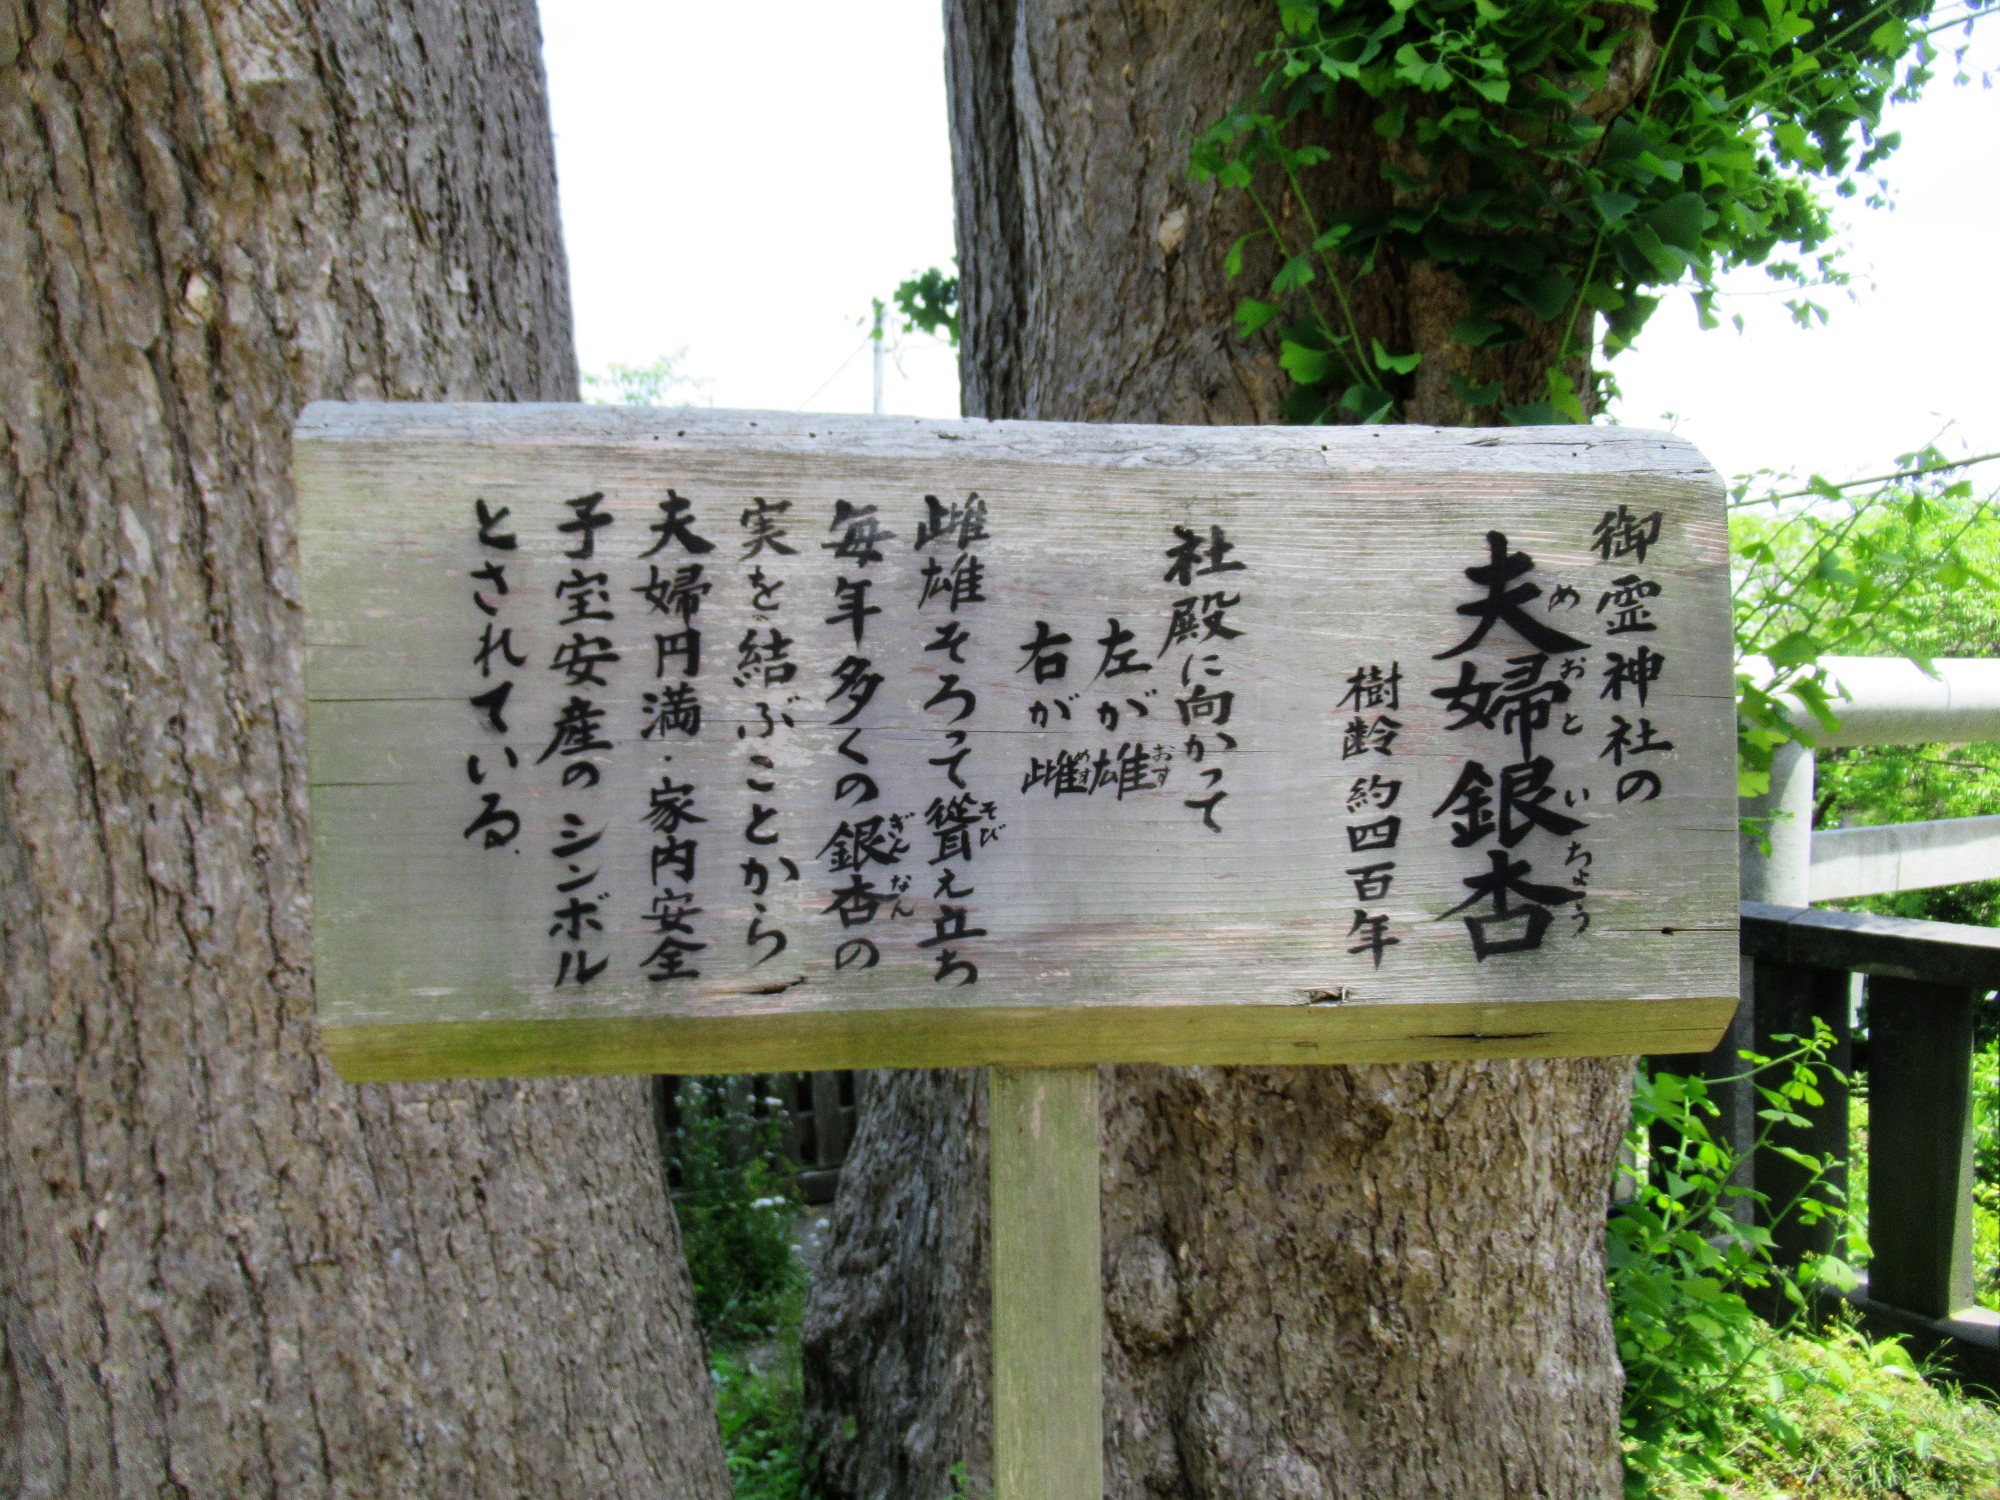 御霊神社の
夫婦銀杏
めおといちょう
樹齢 約四百年
社殿に向かって
左が雄
おす
右が雌
めす
雌雄そろって聳え立ち
そび
毎年多くの銀杏の
ぎんなん
実を結ぶことから
夫婦円満・家内安全
子宝安産のシンボル
とされている.